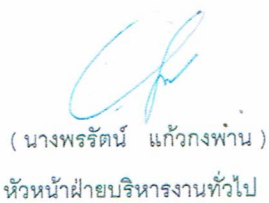 ( นางพรรัตน์ แก้วกงพ่าน )
หัวหน้าฝ่ายบริหารงานทั่วไป